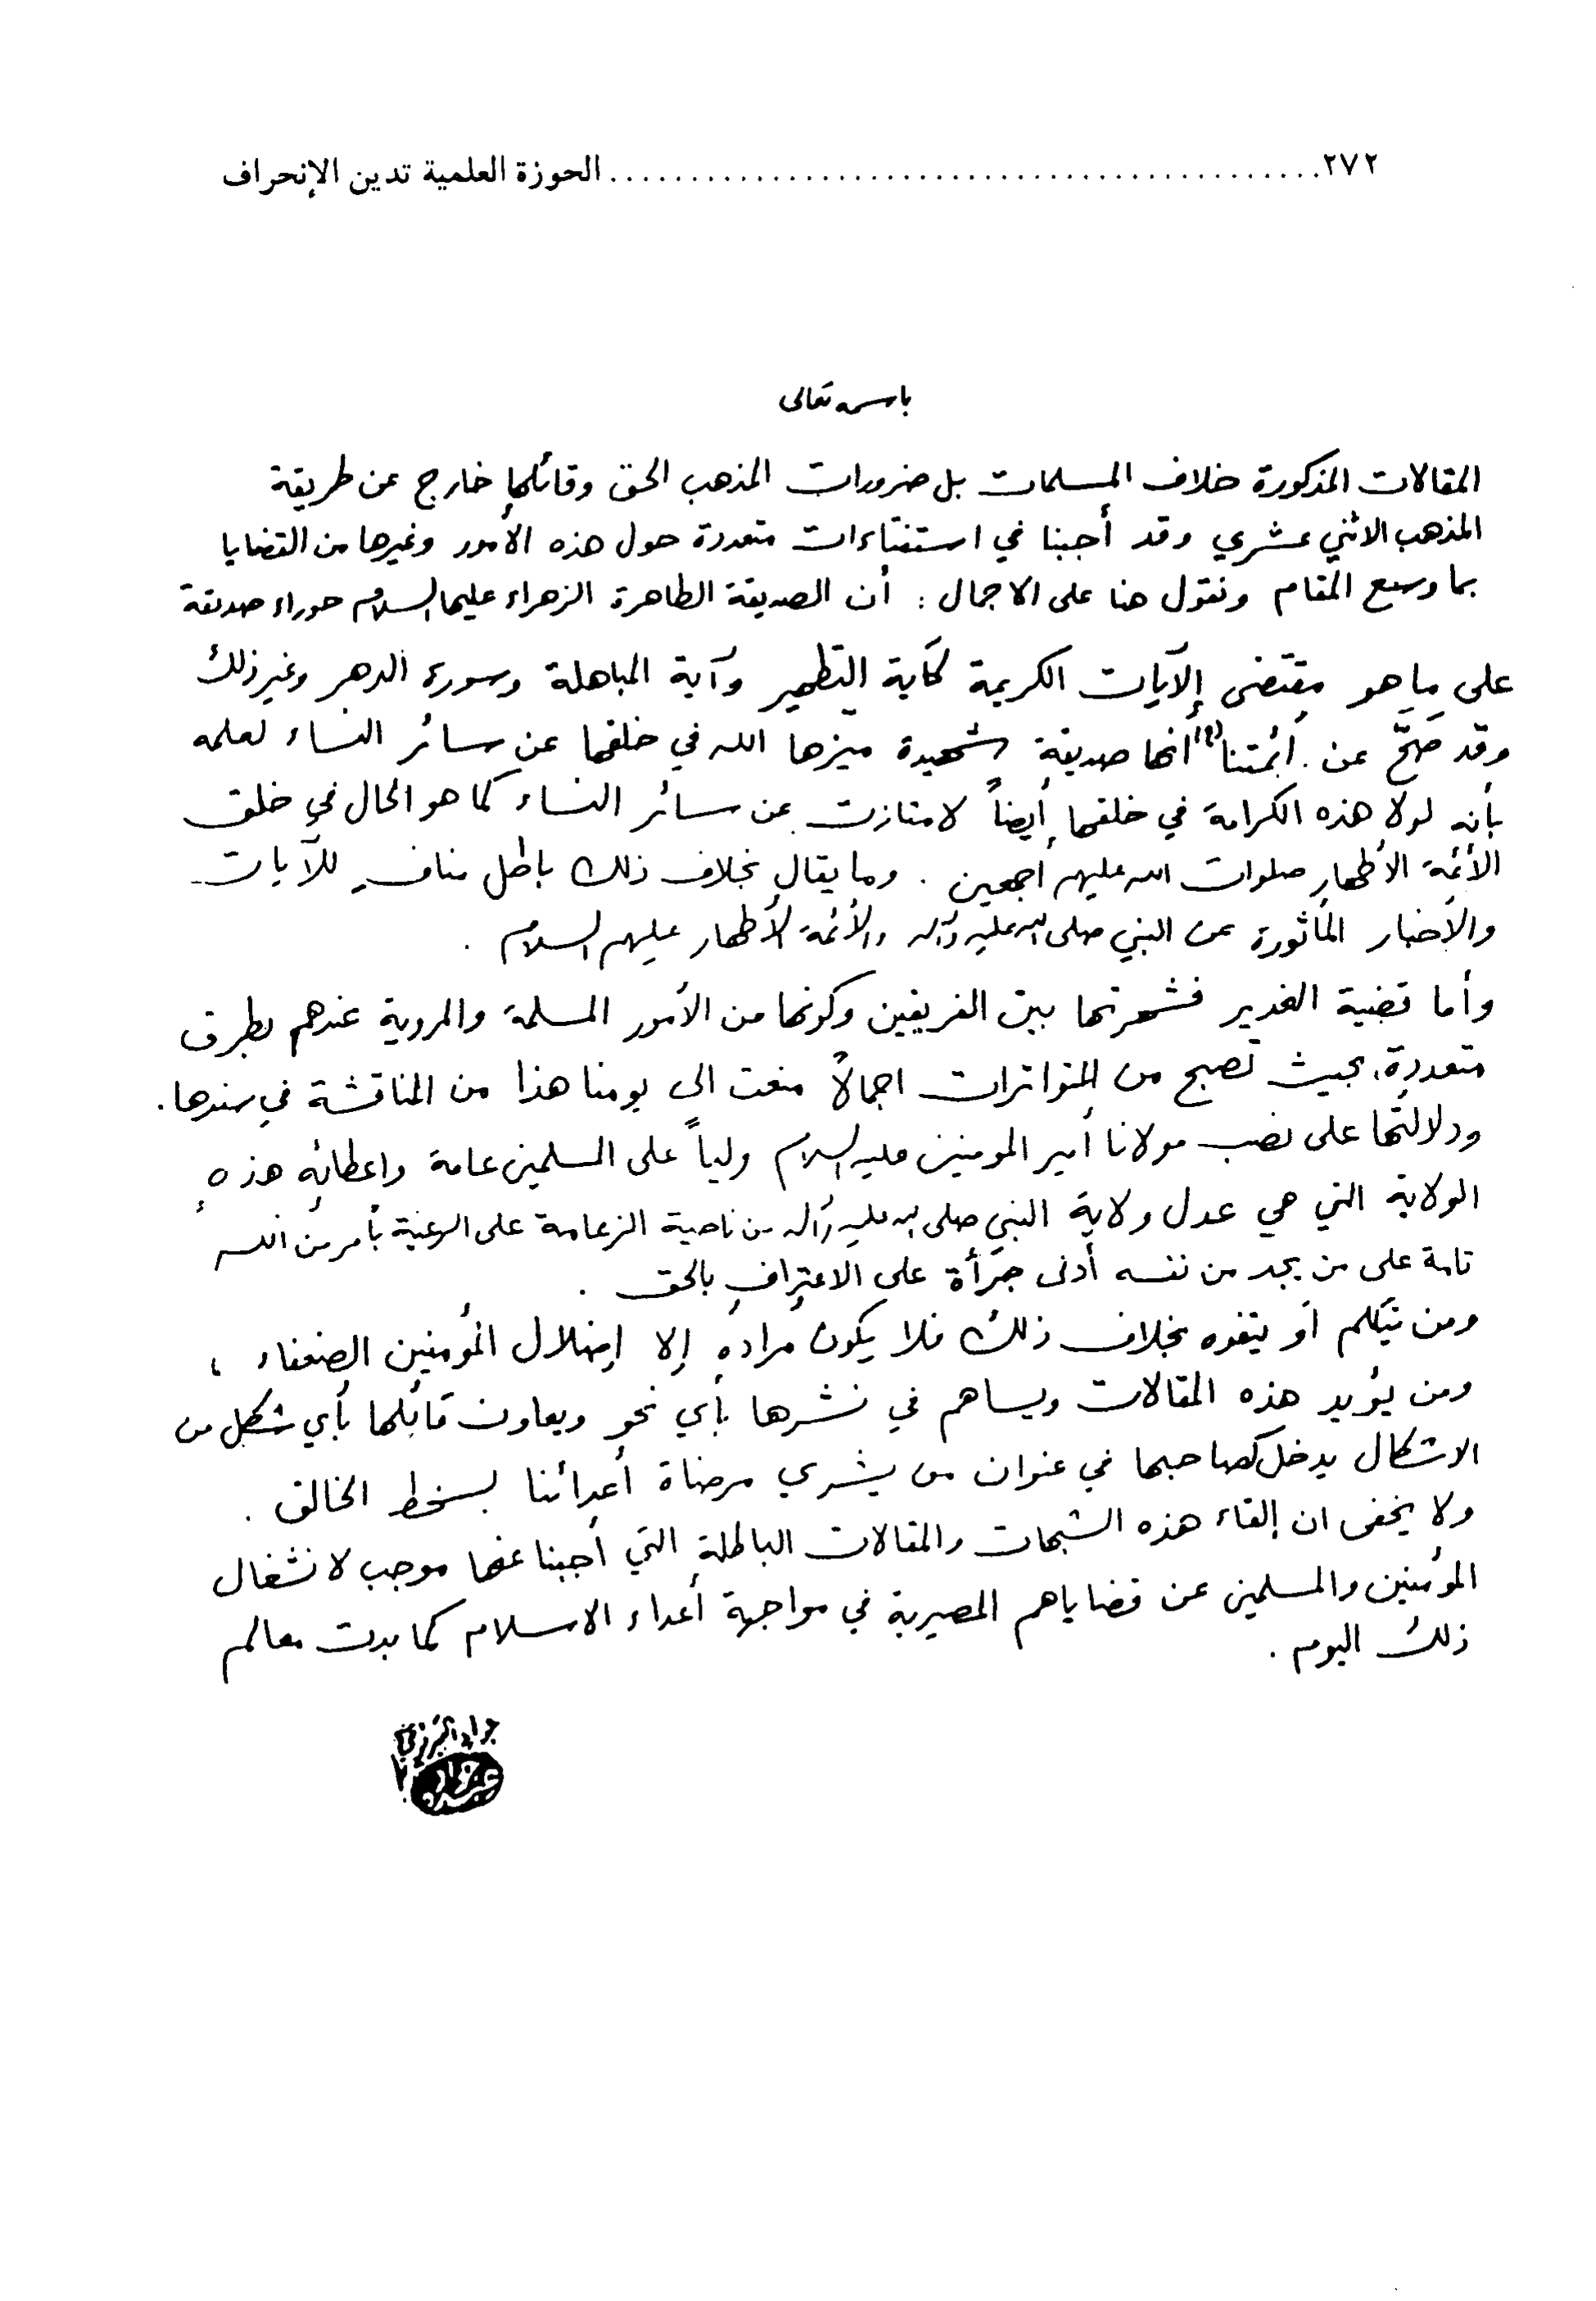 ٢٧٢ ............................................ الحوزة العلمية تدين الإنحراف
باسمه تعالى
المقالات المذكورة خلاف المسلمات بل ضرورات المذهب الحق وقائلها خارج عن طريقة
المذهب الاثني عشري وقد أجبنا في استفتاءات متعددة حول هذه الأمور وغيرها من القضايا
بما وسع المقام ونقول هنا على الاجمال : أن الصديقة الطاهرة الزهراء عليها السلام حوراء صديقة
على ما هو مقتضى الآيات الكريمة كآية التطهير وآية المباهلة وسورة الدهر وغير ذلك
وقد صحّ عن أئمتنا (ع) أنها صديقة شهيدة ميزها الله في خلقها عن سائر النساء لعلمه
بأنه لولا هذه الكرامة في خلقها أيضاً لامتازت عن سائر النساء كما هو الحال في خلق
الأئمة الأطهار صلوات الله عليهم أجمعين . وما يقال بخلاف ذلك باطل منافٍ للآيات
والأخبار المأثورة عن النبي صلى الله عليه وآله والأئمة الأطهار عليهم السلام .
وأما قضية الغدير فشهرتها بين الفريقين وكونها من الأمور المسلمة والمروية عندهم بطرق
متعددة، بحيث تصبح من المتواترات اجمالاً منعت الى يومنا هذا من المناقشة في سندها .
ودلالتها على نصب مولانا أمير المومنين عليه السلام ولياً على المسلمين عامة واعطائه هذه
الولاية التي هي عدل ولاية النبي صلى الله عليه وآله من ناحية الزعامة على الرعية بأمر من الله
تامة على من يجد من نفسه أدنى جرأة على الاعتراف بالحق .
ومن يتكلم أو يتفوه بخلاف ذلك فلا يكون مراده إلا إضلال المؤمنين الضعفاء ،
ومن يؤيد هذه المقالات ويساهم في نشرها بأي نحو ويعاون قائلها بأي شكل من
الاشكال يدخل كصاحبها في عنوان من يشري مرضاة أعدائنا بسخط الخالق .
ولا يخفى ان إلقاء هذه الشبهات والمقالات الباطلة التي أجبنا عنها موجب لانشغال
المؤمنين والمسلمين عن قضاياهم المصيرية في مواجهة أعداء الاسلام كما بدت معالم
ذلك اليوم .
جواد التبريزي